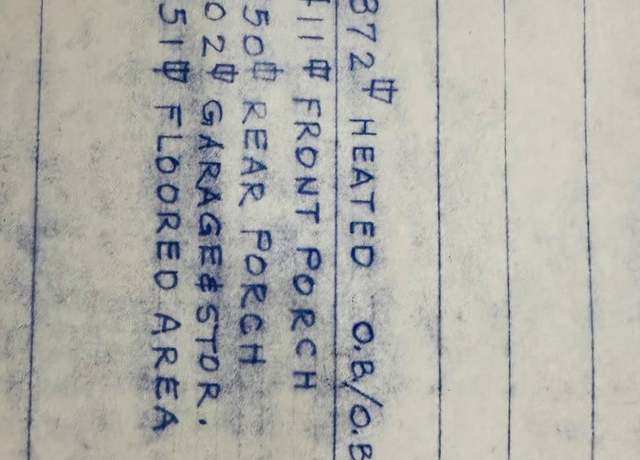 872 □ HEATED O.B/O.B
11 □ FRONT PORCH
50 □ REAR PORCH
02 □ GARAGE & STOR.
51 □ FLOORED AREA